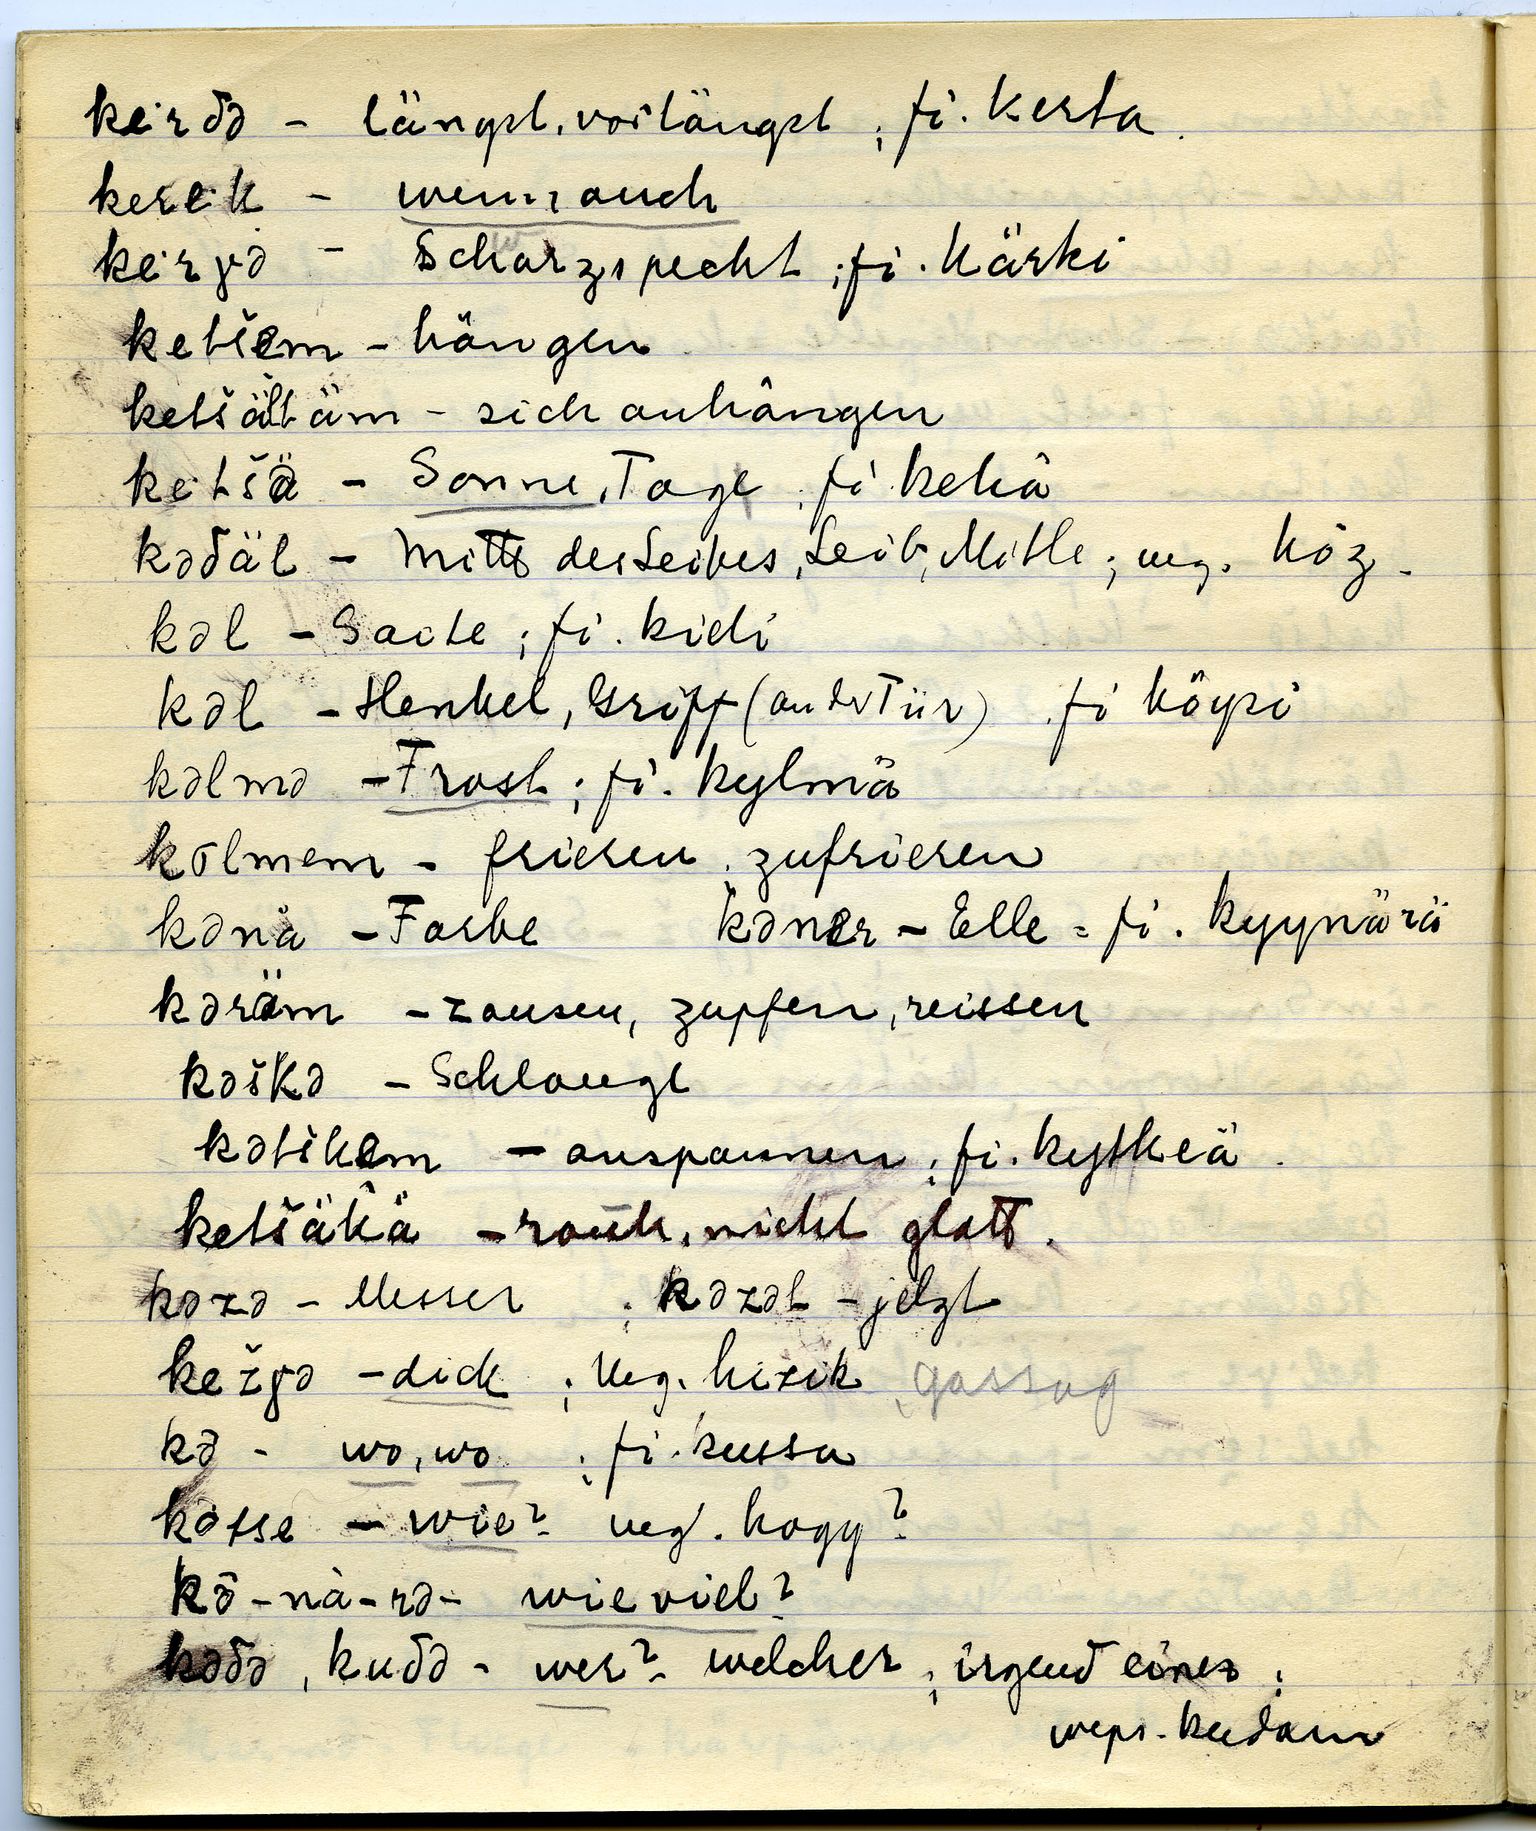 kerδə – längst, vorlängst ; fi. kerta.
kerek – wenn auch
kerγə – Schwarzspecht ; fi. kärki
ketšem – hängen
ketšältäm – sich anhängen
ketšä – Sonne, Tage ; fi kehä
kəδäl – Mitte des Leibes, Leib, Mitte ; ung. köz.
kəl – Saite ; fi. kieli
kəl – Henkel, Griff (an der Tür) ; fi köysi
kəlmə – Frost ; fi. kylmä
kəlmem – frieren, zufrieren
kənä – Farbe kəner – Elle = fi. kyynärä
kəräm – zausen, zupfen, reissen
kəškə – Schlange
kətškem – anspannen ; fi. kytkeä.
ketšäkä – rauh, nicht glatt.
kəzə – Messer ; kəzət – jetzt
kežγə – dick ; Ung. hizik, gassag
kə – wo, wo ; fi. kussa
kətse – wie? ung. hogy?
kə̄-nä-rə – wieviel?
kəδə, kuδə – wer? welcher ; irgend einer ;
weps. kudam